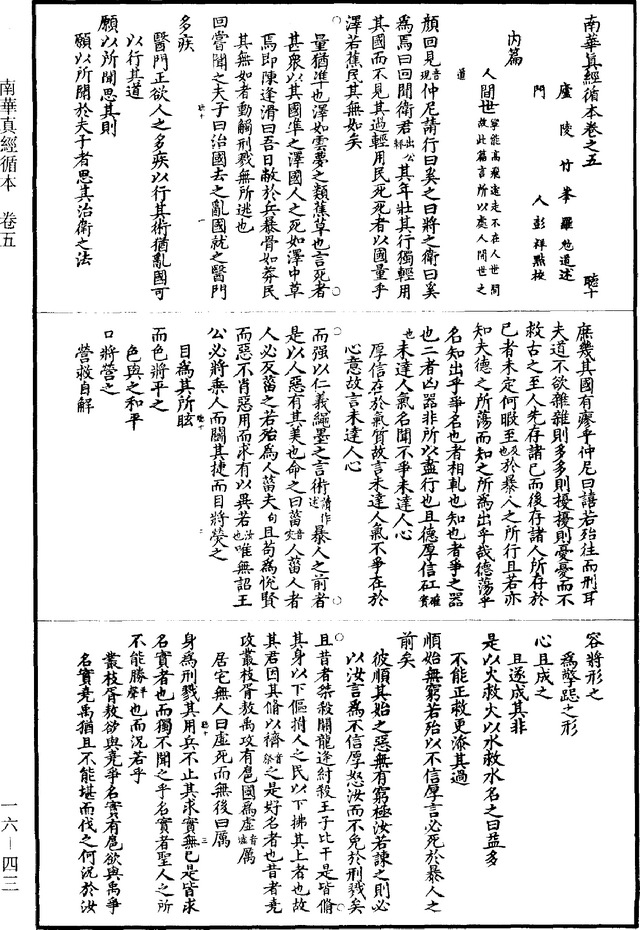 南華真經循本　卷五
南華真經循本卷之五　聽十
廬陵竹峯羅勉道述
門人彭祥點校
內篇
人間世寧能高飛遠走不在人世間故此篇言所以處人間世之
道
顏回見音現仲尼請行曰奚之曰將之衛曰奚
為焉曰回聞衛君出公輒其年壯其行獨輕用
其國而不見其過輕用民死死者以國量乎
澤若蕉民其無如矣
量猶準也澤如雲夢之類蕉草也言死者
甚衆以其國準之澤國人之死如澤中草
焉即陳逢滑曰吾日敝於兵暴骨如莽民
其無如者動觸刑戮無所逃也
回嘗聞之夫子曰治國去之亂國就之醫門
多疾
醫門正欲人之多疾以行其術猶亂國可
以行其道
願以所聞思其則
願以所聞於夫子者思其治衛之法
庶幾其國有瘳乎仲尼曰譆若殆往而刑耳
夫道不欲雜雜則多多則擾擾則憂憂而不
救古之至人先存諸己而後存諸人所存於
己者未定何暇至及也於暴人之所行且若亦
知夫德之所蕩而知之所為出乎哉德蕩乎
名知出乎爭名也者相軋也知也者爭之器
也二者凶器非所以盡行也且德厚信矼確實
也未達人氣名聞不爭未達人心
厚信在於氣質故言未達人氣不爭在於
心意故言未達人心
而强以仁義繩墨之言術讀作述暴人之前者
是以人惡有其美也命之曰菑音災人菑人者
人必反菑之若殆為人菑夫句且苟為悅賢
而惡不肖惡用而求有以異若汝也唯無詔王
公必將乘人而鬬其捷而目將熒之
目為其所眩
而色將平之
色與之和平
口將營之
營救自解
容將形之
為擎跽之形
心且成之
且遂成其非
是以火救火以水救水名之曰益多
不能正救更添其過
順始無窮若殆以不信厚言必死於暴人之
前矣
彼順其始之惡無有窮極汝若諫之則必
以汝言為不信厚怒汝而不免於刑戮矣
且昔者桀殺關龍逄紂殺王子比干是皆脩
其身以下傴拊人之民以下拂其上者也故
其君因其脩以擠音祭之是好名者也昔者堯
攻叢枝胥敖禹攻有扈國為虛音墟厲
居宅無人曰虛死而無後曰厲
身為刑戮其用兵不止其求實無已是皆求
名實者也而獨不聞之乎名實者聖人之所
不能勝平聲也而況若乎
叢枝胥敖欲與堯爭名實有扈欲與禹爭
名實堯禹猶且不能堪而伐之何況於汝
一六—四三